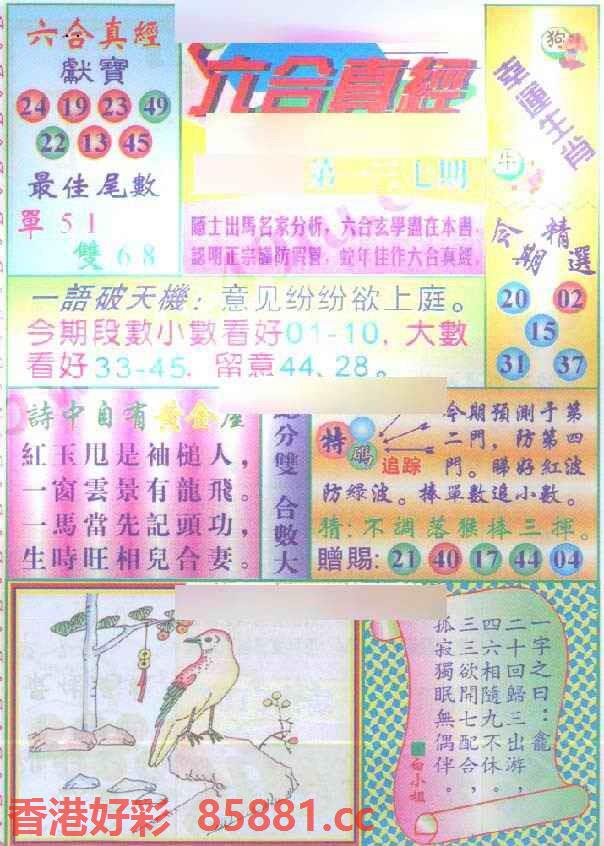 六合真經
獻寶
24 19 23 49
22 13 45
最佳尾數
單 5 1
雙 6 8
六合真經
七期
隱士出馬名家分析，六合玄學盡在本書，
認明正宗謹防假冒，蛇年佳作六合真經，
狗
幸運生肖
牛
今期精選
20 02
15
31 37
一語破天機：意见纷纷欲上庭。
今期段數小數看好01-10，大數
看好33-45，留意44、28。
詩中自有黃金屋
紅玉甩是袖槌人，
一窗雲景有龍飛。
一馬當先記頭功，
生時旺相兒合妻。
分雙 合數大
特碼
追踪
今期預測于第
二門，防第四
門。睇好紅波
防綠波。捧單數追小數。
猜：不調落猴捧三揮。
贈賜：21 40 17 44 04
一字之曰：龕
二十回歸三出游，
四六相隨九不休。
三三欲開七配合，
孤寂獨眠無偶伴。
白小姐
香港好彩 85881.cc